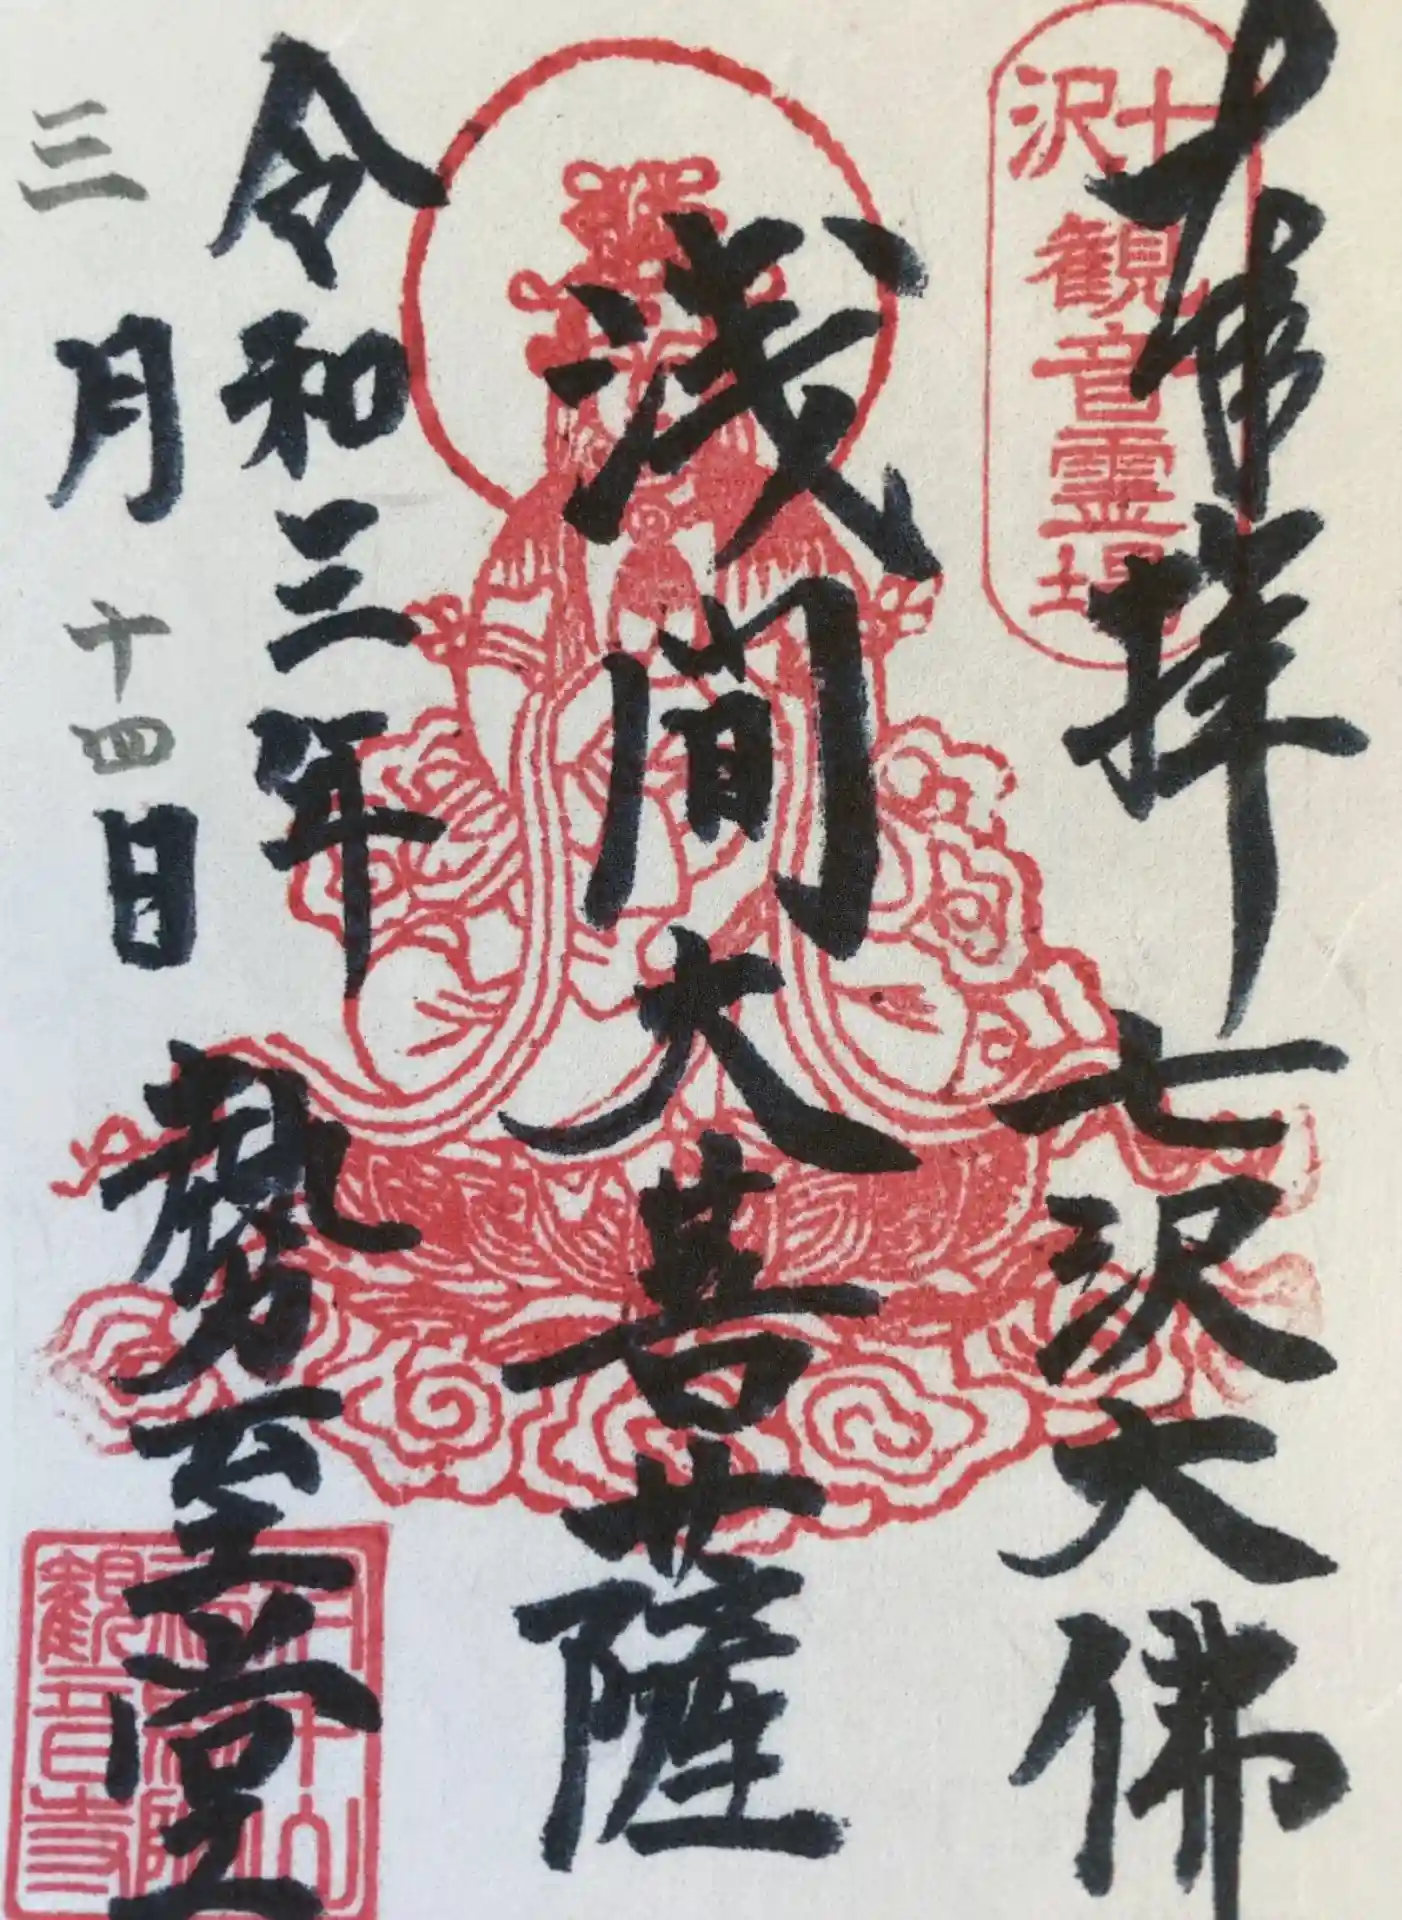 奉拝 七沢大佛
十
沢
観音霊場
浅間大菩薩
令和三年
三月十四日
勢至堂
観音寺